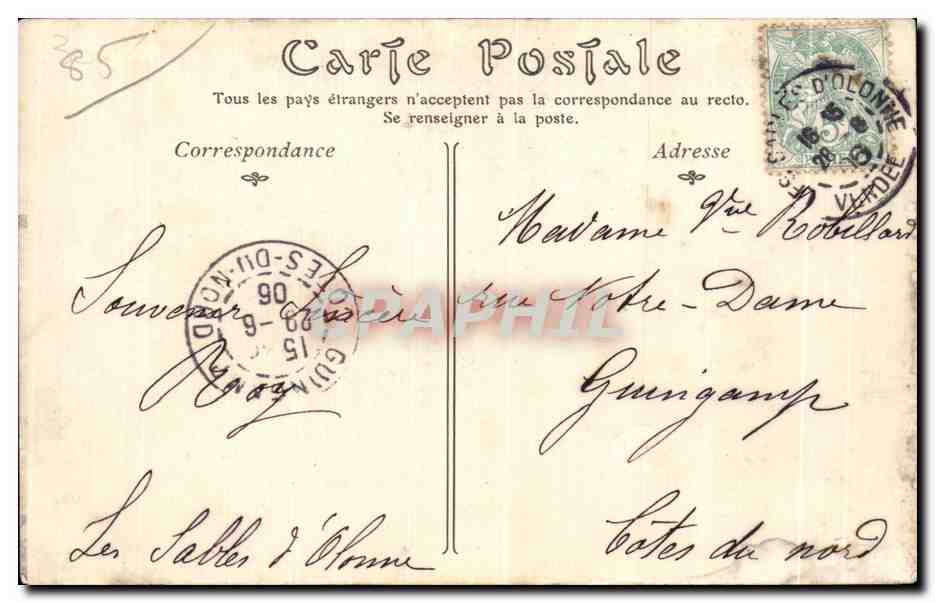 85
Carte Postale
Tous les pays étrangers n'acceptent pas la correspondance au recto.
Se renseigner à la poste.
Correspondance
Adresse
LES SABLES D'OLONNE
VENDÉE
Madame Vve Robillard
rue Notre-Dame
Guingamp
Côtes du nord
Souvenir Sincère
Roy
Les Sables d'Olonne
GUINGAMP
CÔTES-DU-NORD
15
22 - 6
06
CPAPHIL